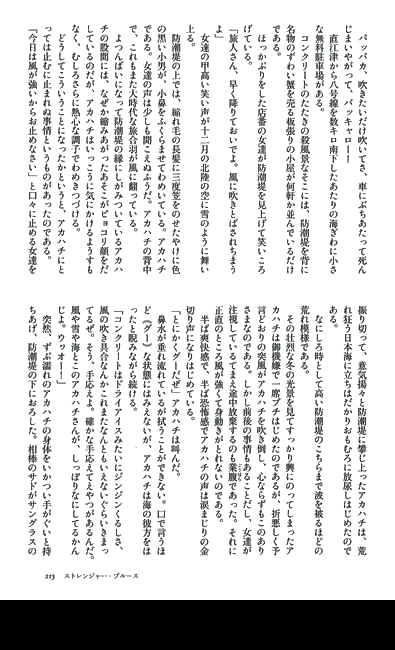 パッパカ、吹きたいだけ吹いてさ、車にぶちあたって死ん
じまいやがって、バッキャロー！
直江津から八号線を数キロ南下したあたりの海ぎわに小さ
な無料駐車場がある。
コンクリートのたたきの殺風景なそこには、防潮堤を背に
名物のずわい蟹を売る板張りの小屋が何軒か並んでいるだけ
である。
ほっかぶりをした店番の女達が防潮堤を見上げて笑いころ
げている。
「旅人さん、早く降りておいでよ。風に吹きとばされちまう
よ」
女達の甲高い笑い声が十二月の北陸の空に雪のように舞い
上る。
防潮堤の上では、縮れ毛の長髪に三度笠をのせたやけに色
の黒い小男が、小鼻をふくらませてわめいている。アカハチ
である。女達の声は少しも聞こえぬふうだ。アカハチの背中
で、これもまた大時代な旅合羽が風に翻っている。
よつんばいになって防潮堤の縁にしがみついているアカハ
チの股間には、なぜか縮みあがったあそこがピョコリ顔をだ
しているのだが、アカハチはいっこうに気にかけるようすも
なく、むしろさらに熱心な調子でわめきつづける。
どうしてこういうことになったかというと、アカハチにと
っては止むに止まれぬ事情というものがあったのである。
「今日は風が強いからお止めなさい」と口々に止める女達を
振り切って、意気揚々と防潮堤に攀じ上ったアカハチは、荒
れ狂う日本海に立ちはだかりおもむろに放尿しはじめたので
ある。
なにしろ時として高い防潮堤のこちらまで波を被るほどの
荒れ模様である。
その壮烈な冬の光景を見てすっかり興にのってしまったア
カハチは御機嫌で一席ブチはじめたのであるが、折悪しく予
言どおりの突風がアカハチを吹き倒し、心ならずもこのあり
さまなのである。しかし前後の事情もあることだし、女達が
注視しているてまえ途中放棄するのも業腹であった。それに
正直のところ風が強くて身動きがとれないのである。
半ば爽快感で、半ば恐怖感でアカハチの声は涙まじりの金
切り声になりはじめている。
「とにかくグーだぜ」アカハチは叫んだ。
鼻水が垂れ流れているが拭うことができない。口で言うほ
ど「グー」な状態にはみえないが、アカハチは海の彼方をは
ったと睨みながら続ける。
「コンクリートはドライアイスみたいにジンジンくるしさ、
風の吹き具合なんかこれまたなんともいえないぐらいきまっ
てるぜ。そう、手応えよ。確かな手応えてえやつがあるんだ。
風や雪や海とこのアカハチさんが、しっぽりなにしてるかん
じよ。ウッオー！」
突然、ずぶ濡れのアカハチの身体をいかつい手がぐいと持
ちあげ、防潮堤の下におろした。相棒のサドがサングラスの
213 ストレンジャー・ブルース